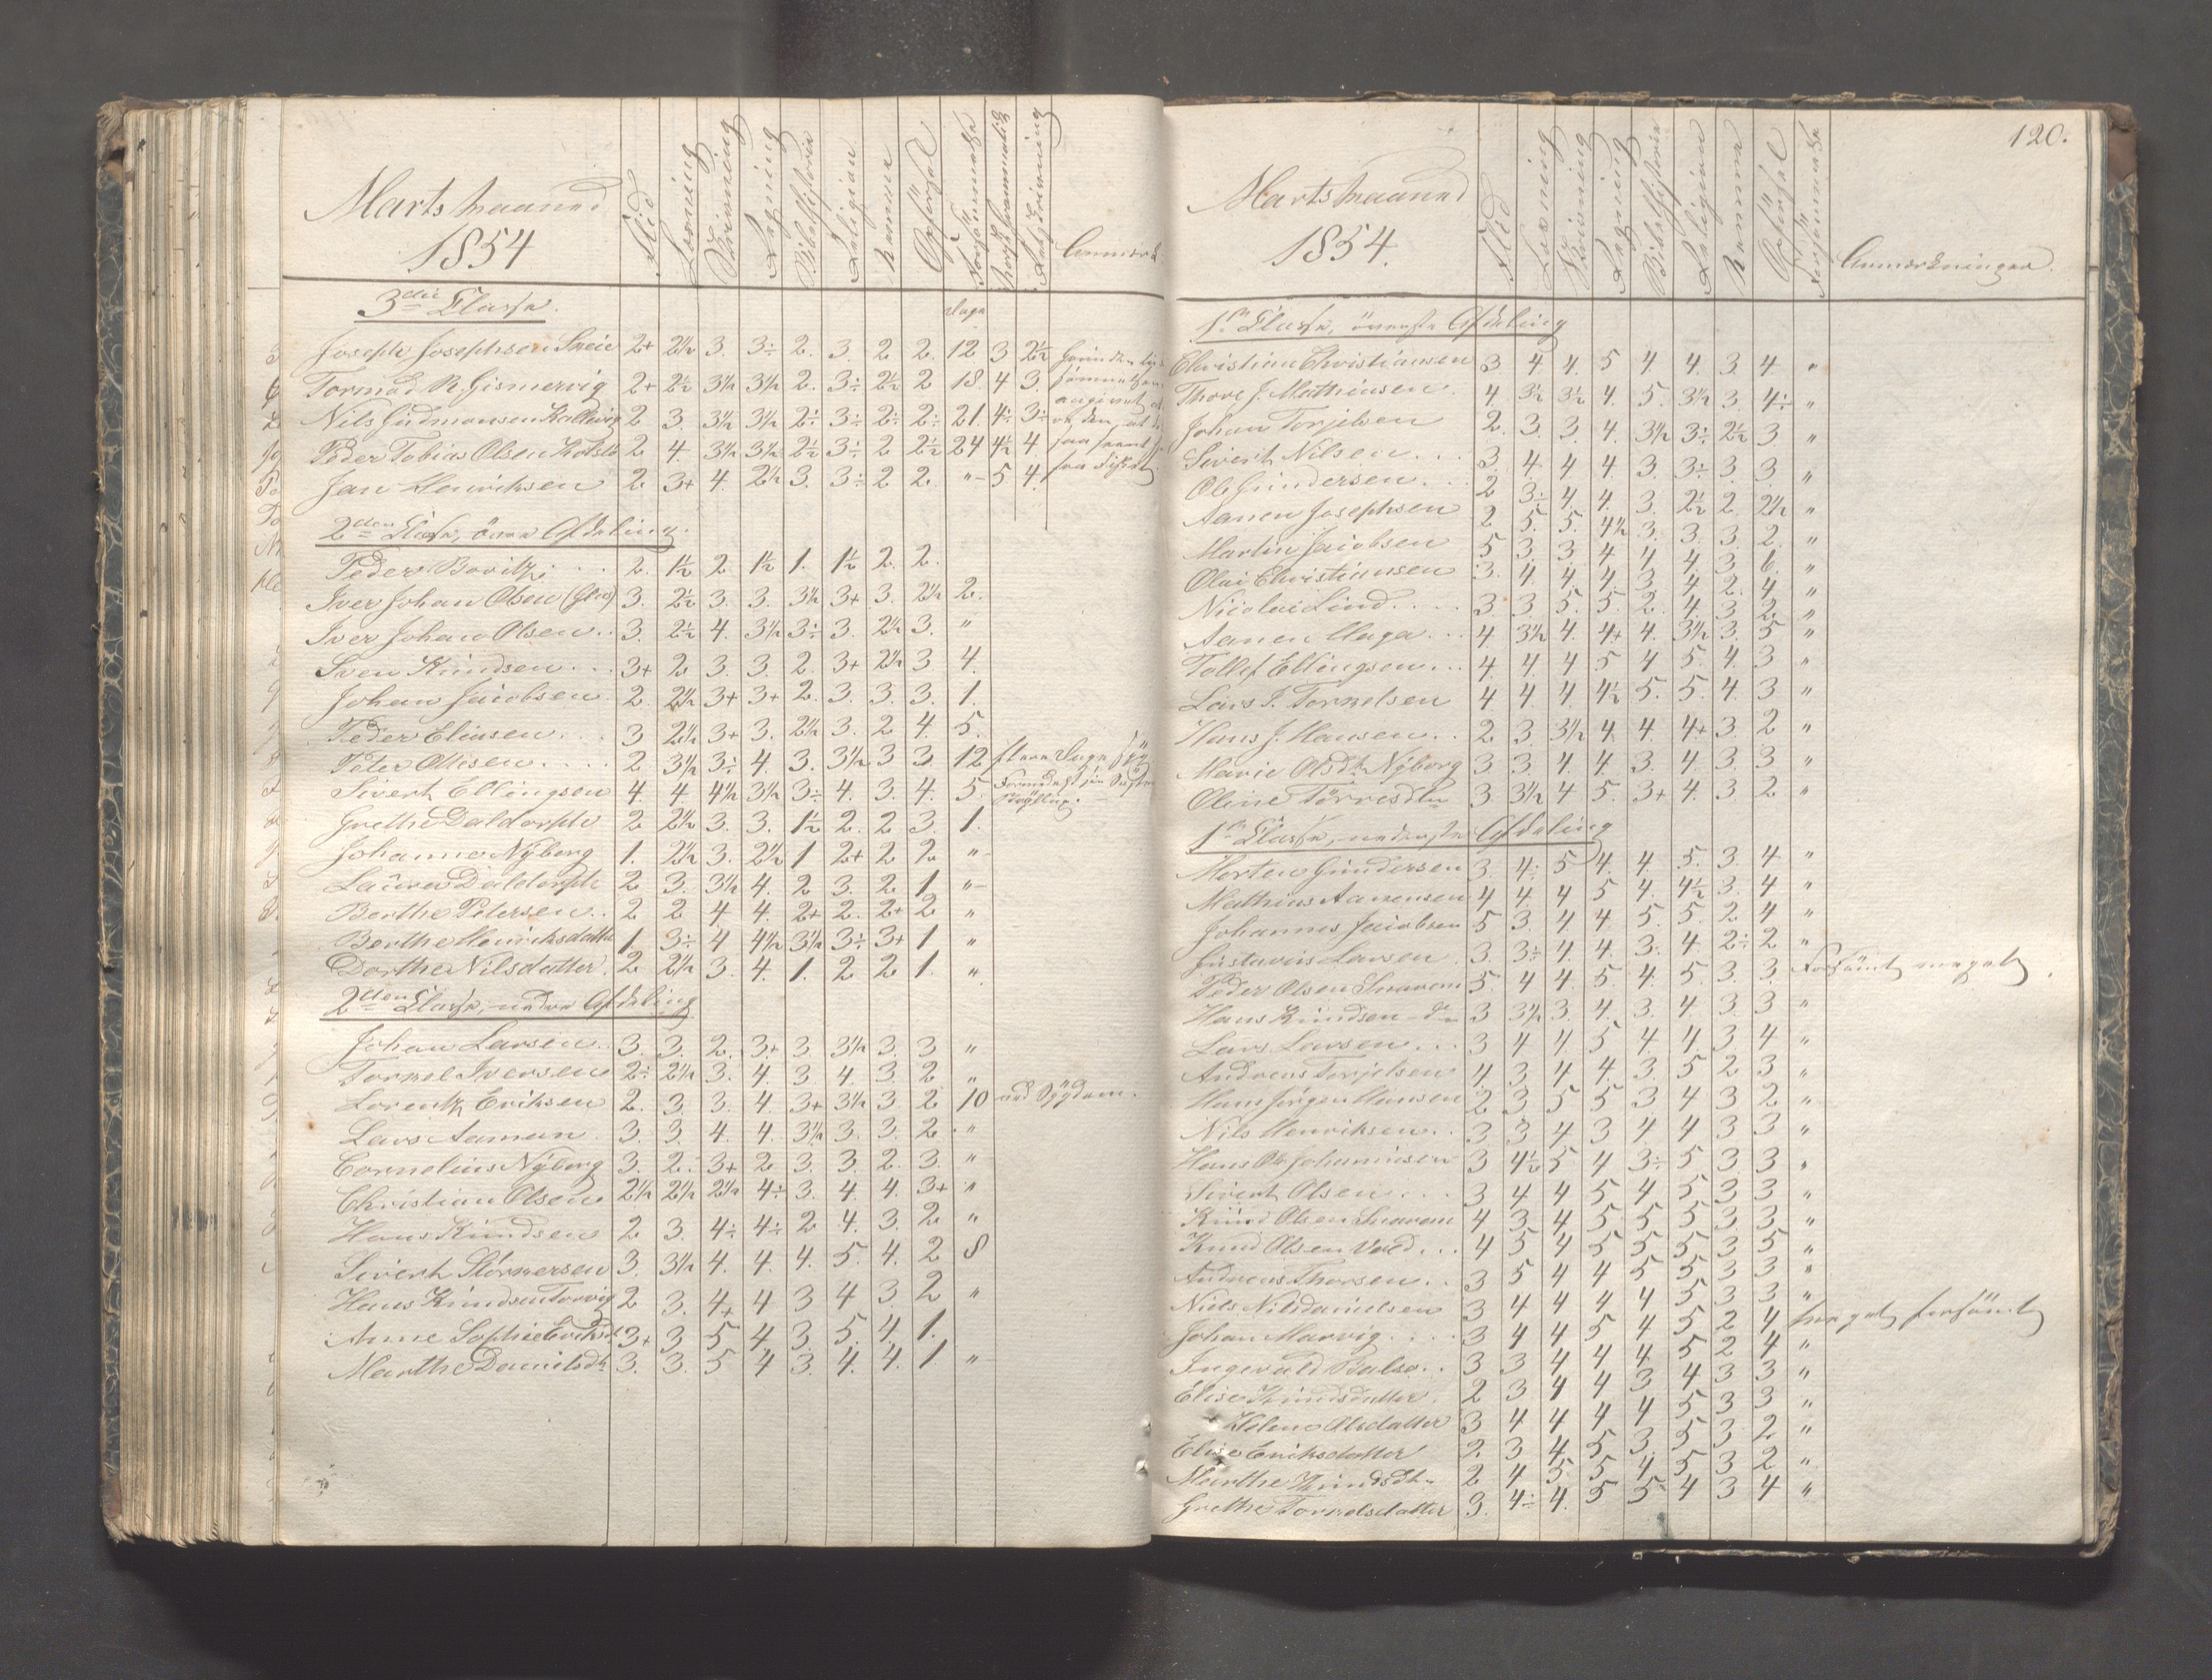 Marts Maaned
1854
Flid Læsning Skrivning Regning Bibelhistorie Religion Opførsel Forsømmelse Retskrivning Anmærk.
3die Classe.
Dage
Joseph Josephsen 2+ 2½ 3. 3÷ 2. 3. 2 2. 12 3 2½
Tormod R. Gismervig 2+ 2½ 3½ 3½ 2. 3÷ 2½ 2 18. 4 3.
Nils Gudmonsen Kallevig 2 3. 3½ 3½ 2÷ 3÷ 2÷ 2÷ 21. 4÷ 3÷
Peder Tobias Olsen 2 4. 3½ 3½ 2½ 3÷ 2 2½ 24 4½ 4.
Jan Henriksen 2 3+ 4. 2½ 3. 3÷ 2 2. " 5 4.
2den Classe, øvre Afdeling.
Peder Bovitz 2. 1½ 2. 1½ 1. 1½ 2. 2.
Iver Johan Olsen 3. 2½ 3. 3. 3½ 3+ 3. 2½ 2.
Iver Johan Olsen 3. 2½ 4. 3½ 3÷ 3. 2½ 3. "
Sven Knudsen 3+ 2 3. 3. 2. 3+ 2½ 3 4.
Johan Jacobsen 2. 2½ 3+ 3+ 2. 3. 3. 3. 1.
Peder Eliasen 3 2½ 3+ 3. 2½ 3. 2 4. 5.
Peter Ottesen 2 3½ 3÷ 4. 3. 3½ 3 3. 12 flere Dage
Sivert Ellingsen 4. 4. 4½ 3½ 3÷ 4. 3. 4. 5.
Grethe Daldorph 2 2½ 3. 3. 1½ 2. 2 3. 1.
Johanne Nyberg 1. 2½ 3. 2½ 1 2+ 2 2 "
Laura Daldorph 2 3. 3½ 4. 2 3. 2 1 "
Berthe Petersen 2 2 4 4. 2+ 2. 2+ 2 "
Berthe Henriksdatter 1. 3÷ 4 4½ 3½ 3÷ 3+ 1 "
Dorthe Nilsdatter 2 2½ 3. 4. 1. 2 2 1. "
2den Classe, nedre Afdeling
Johan Larsen 3. 3. 2. 3+ 3. 3½ 3. 3 "
Tormel Iversen 2÷ 2½ 3. 4. 3 4. 3. 2 "
Lorentz Eriksen 2. 3. 3. 4. 3+ 3½ 3. 2 10 ved Sygdom.
Lars Aamun 3. 3. 4. 4. 3½ 3. 3. 2. "
Cornelius Nyberg 3. 2. 3+ 2 3. 3. 2. 3. "
Christian Olsen 2½ 2½ 2½ 4÷ 3. 4. 4. 3+ "
Hans Knudsen 2 3. 4÷ 4÷ 2 4. 3. 2 "
Sivert Størkersen 3. 3½ 4. 4. 4. 5. 4. 2 8
Hans Knudsen Torvig 2 3. 4+ 4 3 4 3. 2 "
Anne Sophie Eriksd. 3+ 3 5 4. 3. 5. 4. 1.
Marthe Danielsdr. 3. 3. 5 4 3. 4. 4. 1 "
120.
Marts Maaned
1854.
Flid Læsning Skrivning Regning Bibelhistorie Religion Opførsel Forsømmelse Anmærkninger.
1ste Classe, øverste Afdeling
Christian Christiansen 3 4. 4. 5 4. 4. 3. 4 "
Thore J. Mathiasen 4. 3½ 3½ 4. 5. 3½ 3. 4÷ "
Johan Torjelsen 2. 3. 3. 4. 3½ 3÷ 2½ 3. "
Sivert Nilsen 3. 4. 4 4. 3. 3÷ 3. 3. "
Ole Gundersen 2 3÷ 4 4. 3. 2½ 2. 2½ "
Aanen Josephsen 2 5. 5. 4½ 3. 3. 3. 2. "
Martin Jacobsen 5 3. 3. 4 4 4. 3 6. "
Olai Christiansen 3. 4. 4. 4. 3 4 2. 4 "
Nicolai Lind 3. 3 5. 5. 2. 4. 3. 2. "
Aanen Haga 4. 3½ 4. 4+ 4. 3½ 3. 5 "
Tollef Ellingsen 4. 4. 4 5 4 5. 4. 3 "
Lars T. Tormelsen 4 4. 4. 4½ 5. 5. 4. 3 "
Hans J. Hansen 2 3. 3½ 4. 4. 4+ 3. 2 "
Marie Olsdtr. Nyberg 3. 3. 4. 4. 3. 4. 3. 3 "
Oline Tørresdtr 3. 3½ 4 5. 3+ 4. 3 2 "
1ste Classe, nederste Afdeling
Morten Gundersen 3. 4÷ 5 4. 4. 5. 3. 4 "
Mathias Aanensen 4 4. 4 5 4. 4½ 3. 4 "
Johannes Jacobsen 5 3. 4 4. 5. 5. 2 4 "
Gustavius Larsen 3. 3÷ 4. 4. 3. 4. 2÷ 2 "
Peder Olsen 5. 4 4. 5 4. 5. 3. 3. Forsømt meget
Hans Knudsen 3 3½ 3. 4. 3. 4 3 3 "
Lars Larsen 3 4 4. 5 4 4. 3 4 "
Andreas Torjelsen 4 3. 4 4. 3. 5 2 3 "
Hans Jørgen Hansen 2 3. 5 5 3 4 3 2 "
Nils Henriksen 3 3 4 3 4 4 3 3 "
Hans Ole Johannesen 3 4½ 5 4 3÷ 5 3. 3 "
Sivert Olsen 3 4 4 5 4 5 3 3 "
Knud Olsen 4 3 4 5 5 5 3 3 "
Knud Olsen 4 5 4 5 5 5 3 5 "
Andreas Thorsen 3 5 4 4 5 5 3 3 "
Niels Nilsdanielsen 3 4 4 4 4 5 3 3 "
Johan Marvig 3 4 4 5 4 5 2 4 meget forsømt
Ingevald 3 3 4 4 4 5 2 4 "
Elise Knudsdatter 2 3 4 4 3 4 3 3 "
Helene Olsdatter 3 4 4 4 4 5 3 3 "
Elise Eriksdatter 2 3 4 5 3. 5 3 2 "
Marthe Knudsdtr. 2 4 5. 5 4 5 3 2 "
Grethe Tormelsdatter 3. 4÷ 4. 5 5 4 3 4 "